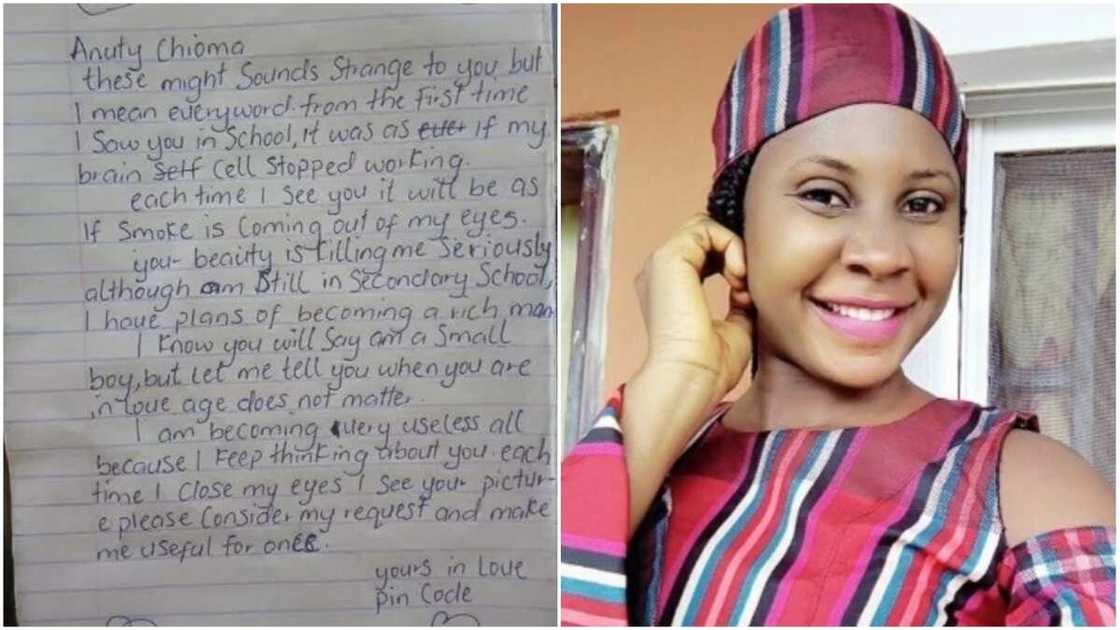 Anuty Chioma
these might Sounds Strange to you but
I mean everyword. from the First time
I Saw you in School, it was as ever if my
brain self cell stopped working.
each time I see you it will be as
If smoke is coming out of my eyes.
your beauity is killing me Seriously
although am still in Secondary School,
I have plans of becoming a rich man
I know you will Say am a Small
boy, but let me tell you when you are
in love age does not matter.
I am becoming very useless all
because I keep thinking about you. each
time I close my eyes I see your pictur-
e please Consider my request and make
me useful for once.
yours in Love
Pin Code